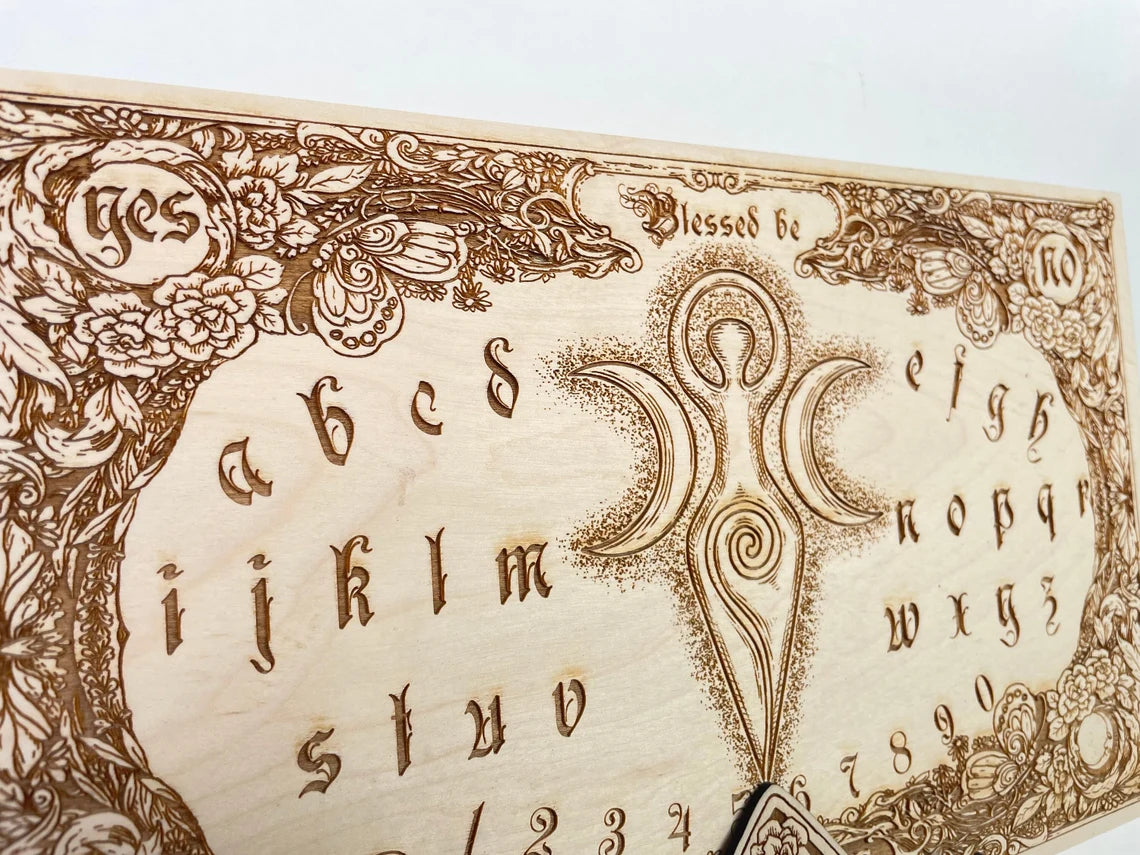 yes Blessed be no
a b c d e f g h
i j k l m n o p q r
s t u v w x y z
1 2 3 4 6 7 8 9 0